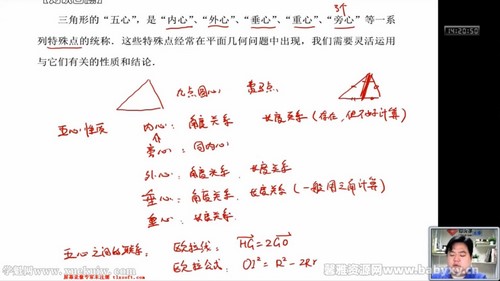 3个
三角形的“五心”,是“内心”、“外心”、“垂心”、“重心”、“旁心”等一系
列特殊点的统称.这些特殊点经常在平面几何问题中出现,我们需要灵活运
用与它们有关的性质和结论.
14:20:50
几点圆心
五心性质
内心: 角度关系 长度关系 (存在,但不好计算)
旁心: 同内心
外心: 角度关系 长度关系
垂心: 角度关系 长度关系 (一般用三角计算)
重心: 长度关系
五心之间的联系: 欧拉线: HG=2GO
欧拉公式: OI²=R²-2Rr
馨雅资源网 www.babyxy.cn